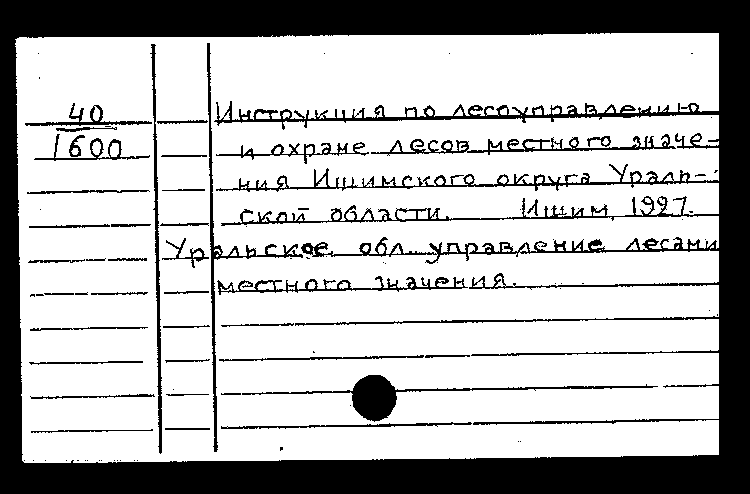 40
1600
Инструкция по лесоуправлению
и охране лесов местного значе-
ния Ишимского округа Ураль-
ской области. Ишим, 1927.
Уральское обл. управление лесами
местного значения.